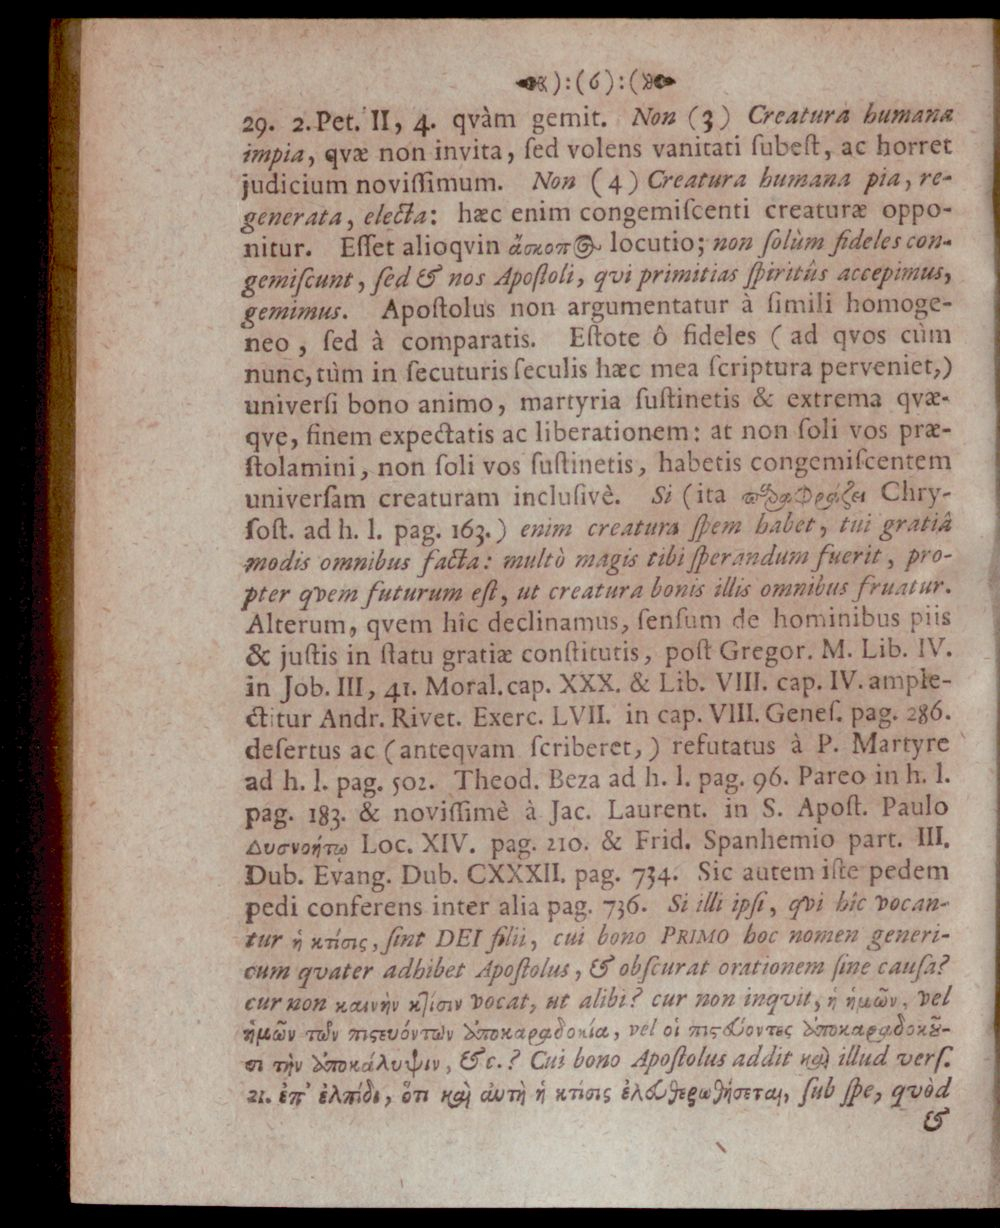 ):(6):(
29. 2. Pet. II, 4. qvàm gemit. Non (3) Creatura humana
impia, qvæ non invita, ſed volens vanitati ſubeſt, ac horret
judicium noviſſimum. Non (4) Creatura humana pia, re-
generata, electa: hæc enim congemiſcenti creaturæ oppo-
nitur. Eſſet alioqvin ἄσκοπ@ locutio; non ſolùm fideles con-
gemiſcunt, ſed & nos Apoſtoli, qvi primitias ſpiritûs accepimus,
gemimus. Apoſtolus non argumentatur à ſimili homoge-
neo, ſed à comparatis. Eſtote ô fideles (ad qvos cùm
nunc, tùm in ſecuturis ſeculis hæc mea ſcriptura perveniet,)
univerſi bono animo, martyria ſuſtinetis & extrema qvæ-
qve, finem expectatis ac liberationem: at non ſoli vos præ-
ſtolamini, non ſoli vos ſuſtinetis, habetis congemiſcentem
univerſam creaturam incluſivè. Si (ita παραφράζει Chry-
ſoſt. ad h. l. pag. 163.) enim creatura ſpem habet, tui gratiâ
modis omnibus facta: multò magis tibi ſperandum fuerit, pro-
pter qvem futurum eſt, ut creatura bonis illis omnibus fruatur.
Alterum, qvem hîc declinamus, ſenſum de hominibus piis
& juſtis in ſtatu gratiæ conſtitutis, poſt Gregor. M. Lib. IV.
in Job. III, 41. Moral. cap. XXX. & Lib. VIII. cap. IV. ample-
ctitur Andr. Rivet. Exerc. LVII. in cap. VIII. Geneſ. pag. 286.
deſertus ac (anteqvam ſcriberet,) refutatus à P. Martyre
ad h. l. pag. 502. Theod. Beza ad h. l. pag. 96. Pareo in h. l.
pag. 183. & noviſſimè à Jac. Laurent. in S. Apoſt. Paulo
Δυσνοήτῳ Loc. XIV. pag. 210. & Frid. Spanhemio part. III.
Dub. Evang. Dub. CXXXII. pag. 734. Sic autem iſte pedem
pedi conferens inter alia pag. 736. Si illi ipſi, qvi hîc vocan-
tur ἡ κτίσις, ſint DEI filii, cui bono PRIMO hoc nomen generi-
cum qvater adhibet Apoſtolus, & obſcurat orationem ſine cauſa?
cur non καινὴν κτίσιν vocat, ut alibi? cur non inqvit, ἡ ἡμῶν, vel
ἡμῶν τῶν πιστευόντων ἀποκαραδοκία, vel οἱ πιστεύοντες ἀποκαραδοκοῦ-
σι τὴν ἀποκάλυψιν, &c.? Cui bono Apoſtolus addit καὶ illud verſ.
21. ἐπ' ἐλπίδι, ὅτι καὶ αὐτὴ ἡ κτίσις ἐλευθερωθήσεται, ſub ſpe, qvòd
&